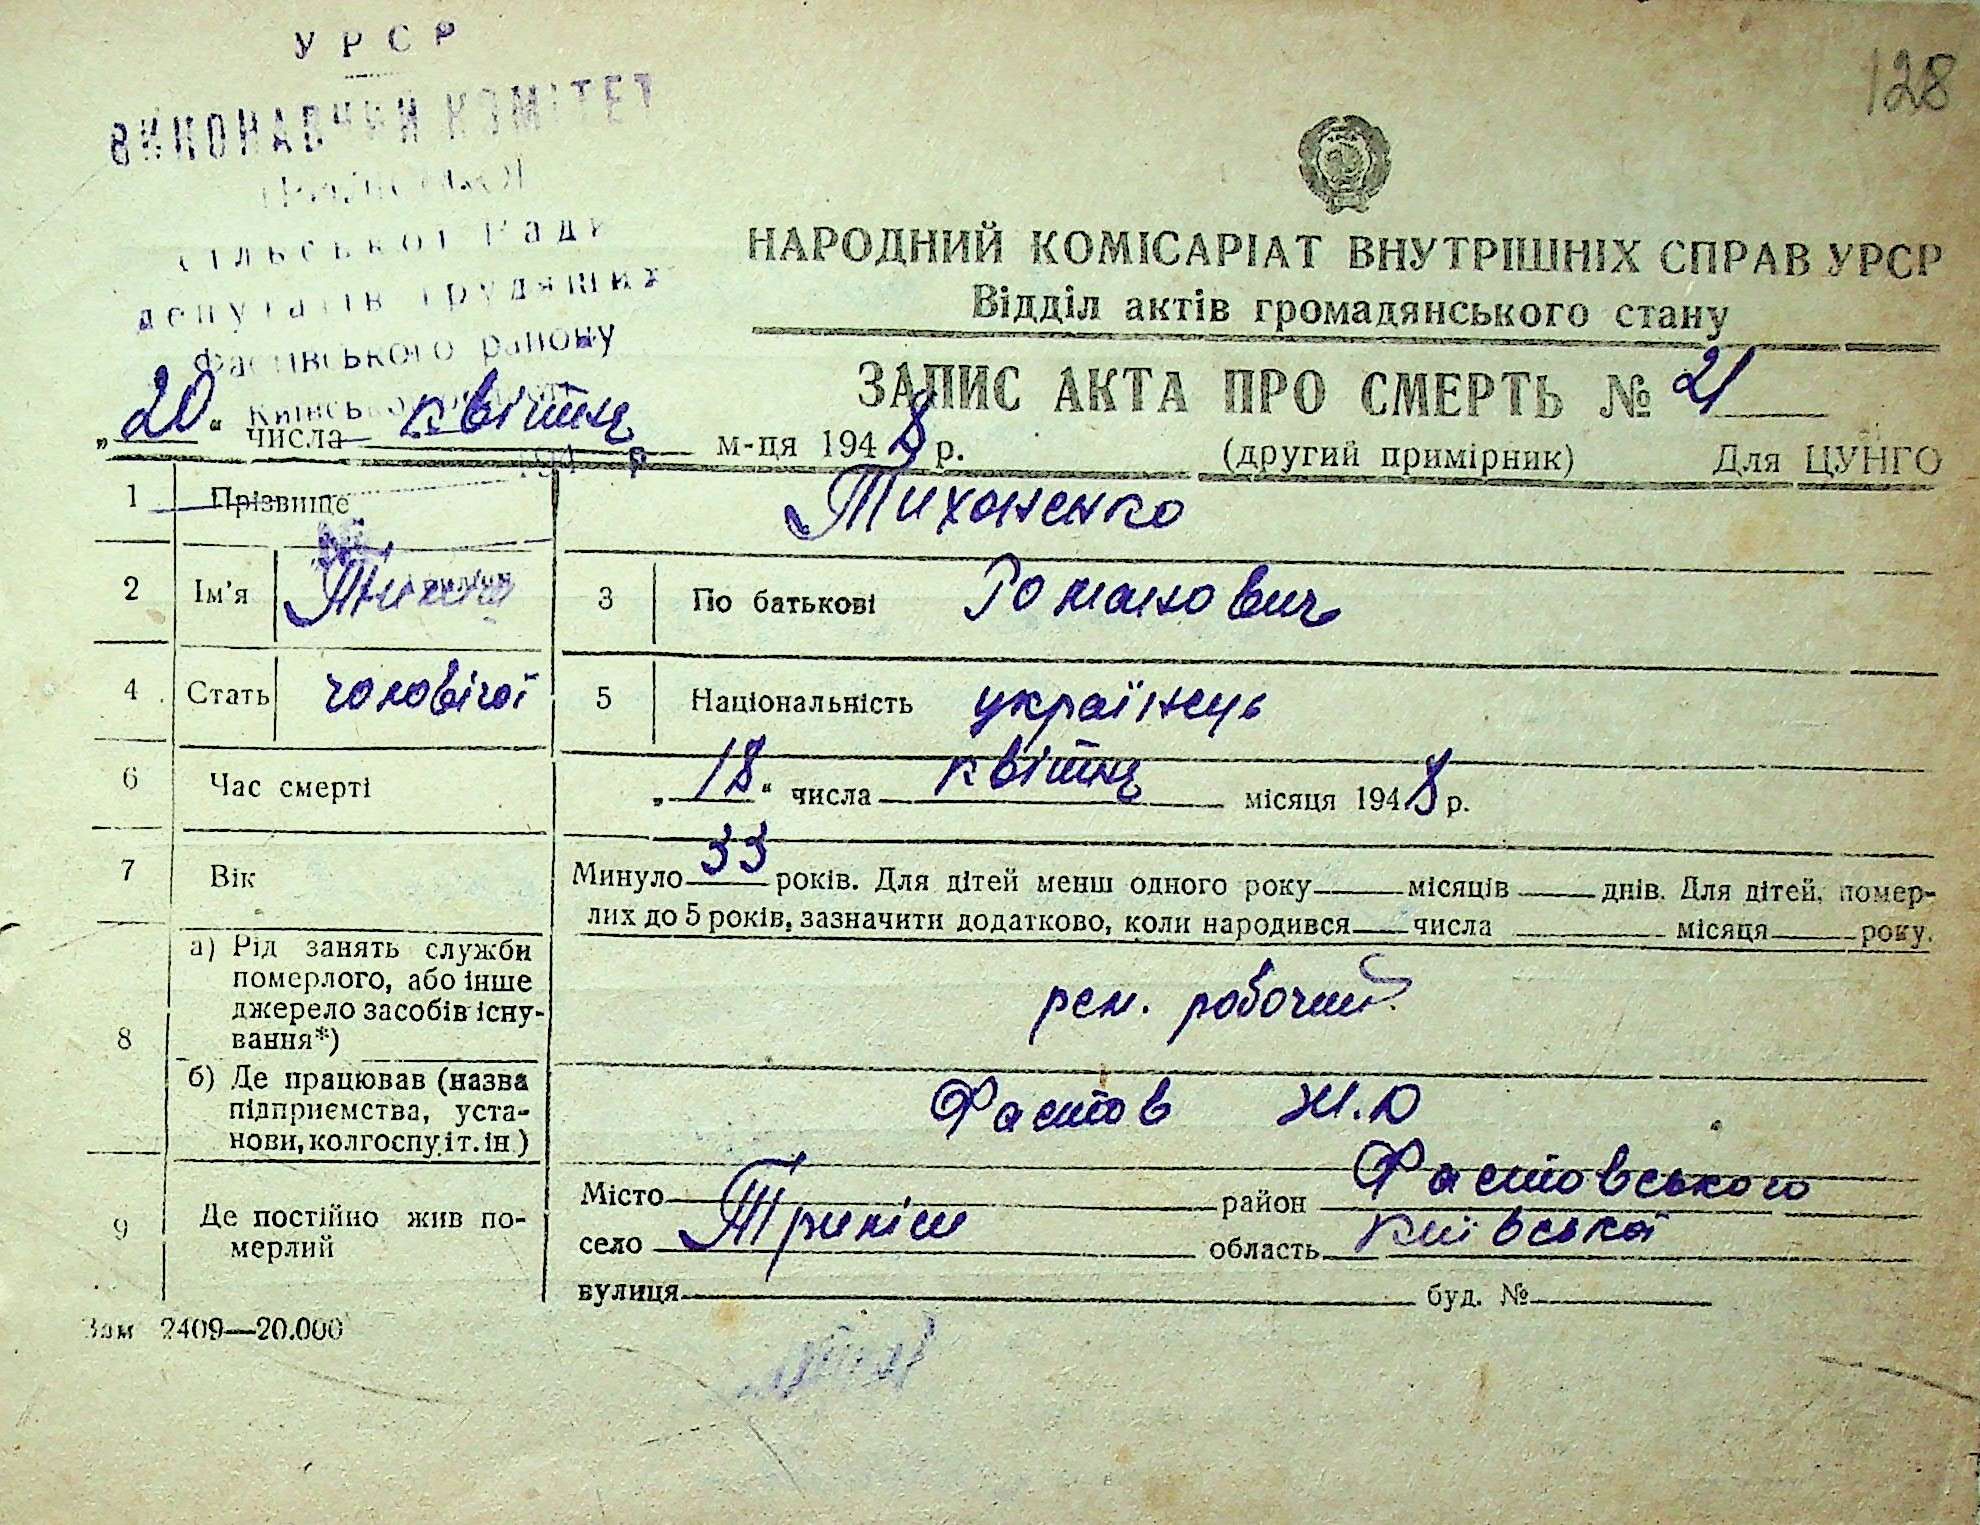 128
УРСР
ВИКОНАВЧИЙ КОМІТЕТ
сільської Ради
депутатів трудящих
Фастівського району
Київської
194 р
НАРОДНИЙ КОМІСАРІАТ ВНУТРІШНІХ СПРАВ УРСР
Відділ актів громадянського стану
ЗАПИС АКТА ПРО СМЕРТЬ № 21
„20“ числа квітня м-ця 1948 р. (другий примірник) Для ЦУНГО
1 Прізвище Тихоненко
2 Ім'я 3 По батькові Романович
4 Стать чоловічої 5 Національність українець
6 Час смерті „18“ числа квітня місяця 1948 р.
7 Вік Минуло 33 років. Для дітей менш одного року місяців днів. Для дітей, помер-
лих до 5 років, зазначити додатково, коли народився числа місяця року.
8 а) Рід занять служби
померлого, або інше
джерело засобів існу-
вання*)
рем. робочий
б) Де працював (назва
підприємства, уста-
нови, колгоспу іт. ін)
Фастов Ж.Д
9 Де постійно жив по-
мерлий
Місто район Фастовського
село Триліси область київської
вулиця буд. №
Зам 2409—20.000